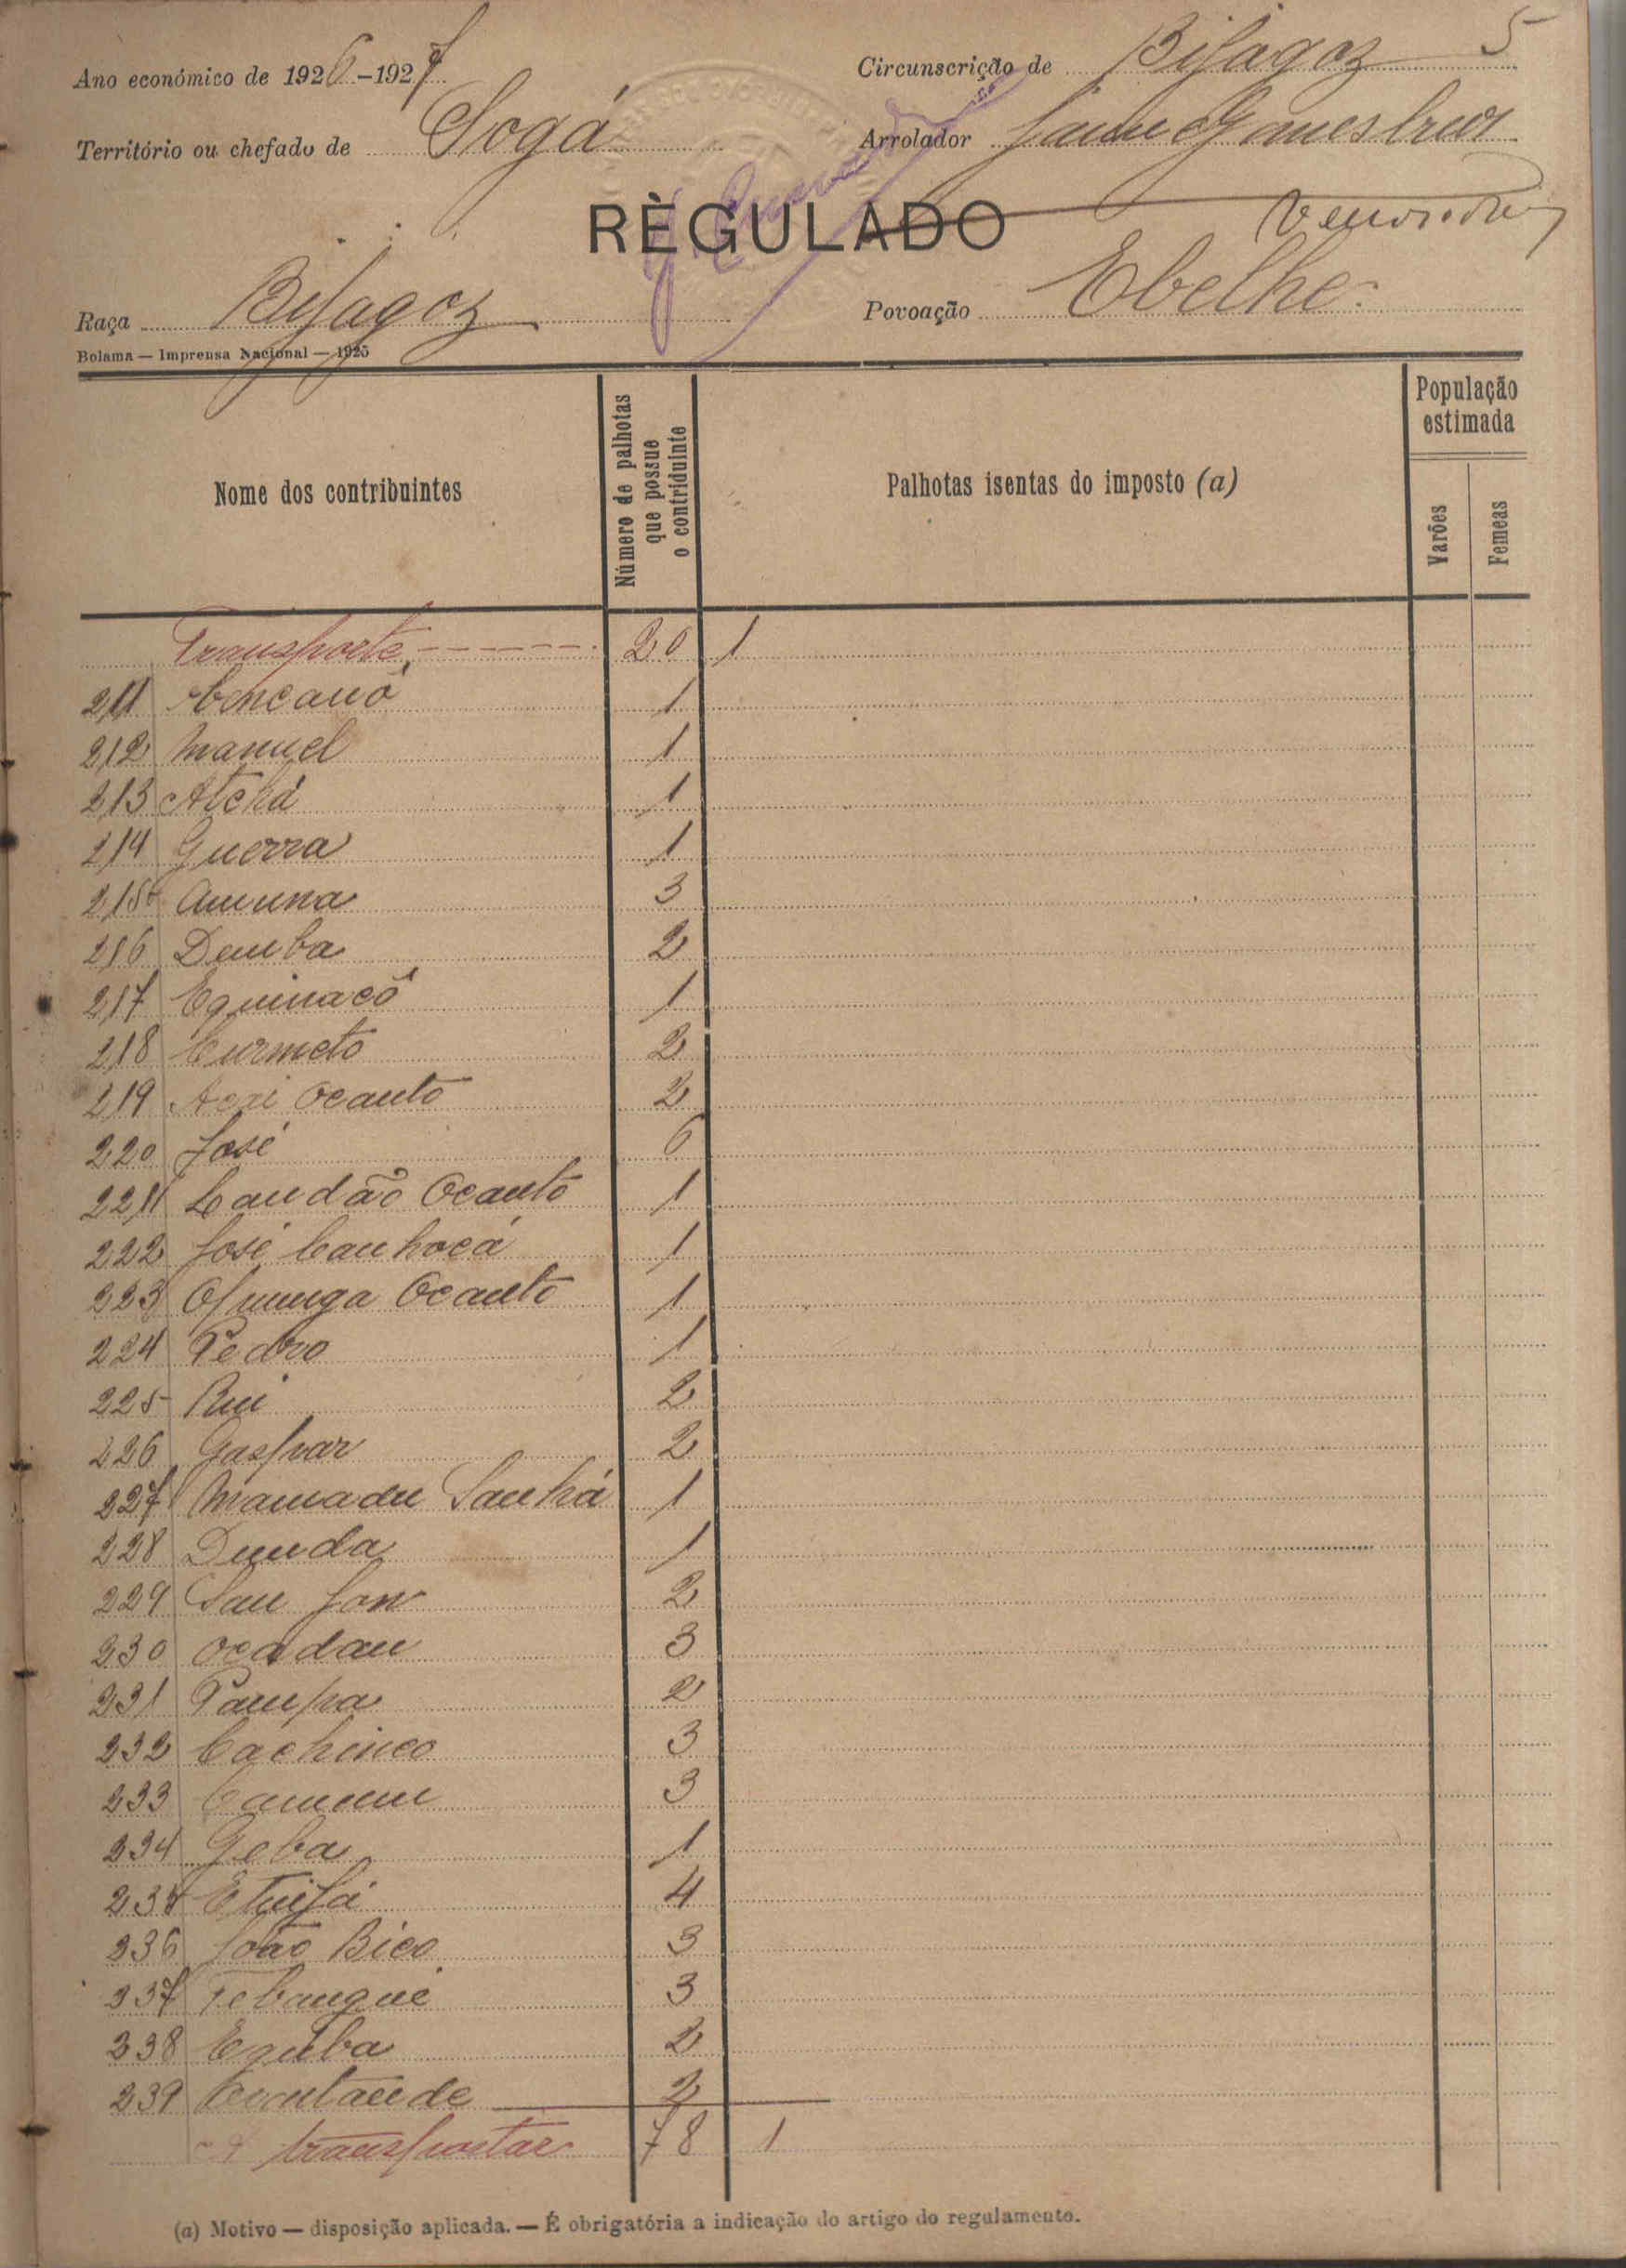 5
Ano económico de 1926-1927 Circunscrição de Bijagoz
Território ou chefado de Sogá Arrolador Jaime
RÈGULADO
Raça Bijagoz Povoação Ebelhe
Bolama — Imprensa Nacional — 1925
Nome dos contribuintes
Número de palhotas que possue o contriduinte
Palhotas isentas do imposto (a)
População estimada
Varões
Femeas
Transporte 20 1
211 Concanó 1
212 Manuel 1
213 Atchá 1
214 Guerra 1
215 Amuna 3
216 Demba 2
217 Equinacó 1
218 Curmeto 2
219 Ocanto 2
220 José 6
221 Candão Ocanto 1
222 José Canhocá 1
223 Ocanto 1
224 Pedro 1
225 Rui 2
226 Gaspar 2
227 Mamadu Sanhá 1
228 Dunda 1
229 San Jon 2
230 Ocadan 3
231 Pampa 2
232 Cachinco 3
233 3
234 Geba 1
235 4
236 João Bico 3
237 Tebangue 3
238 Equba 2
239 2
A transportar 78 1
(a) Motivo — disposição aplicada. — É obrigatória a indicação do artigo do regulamento.